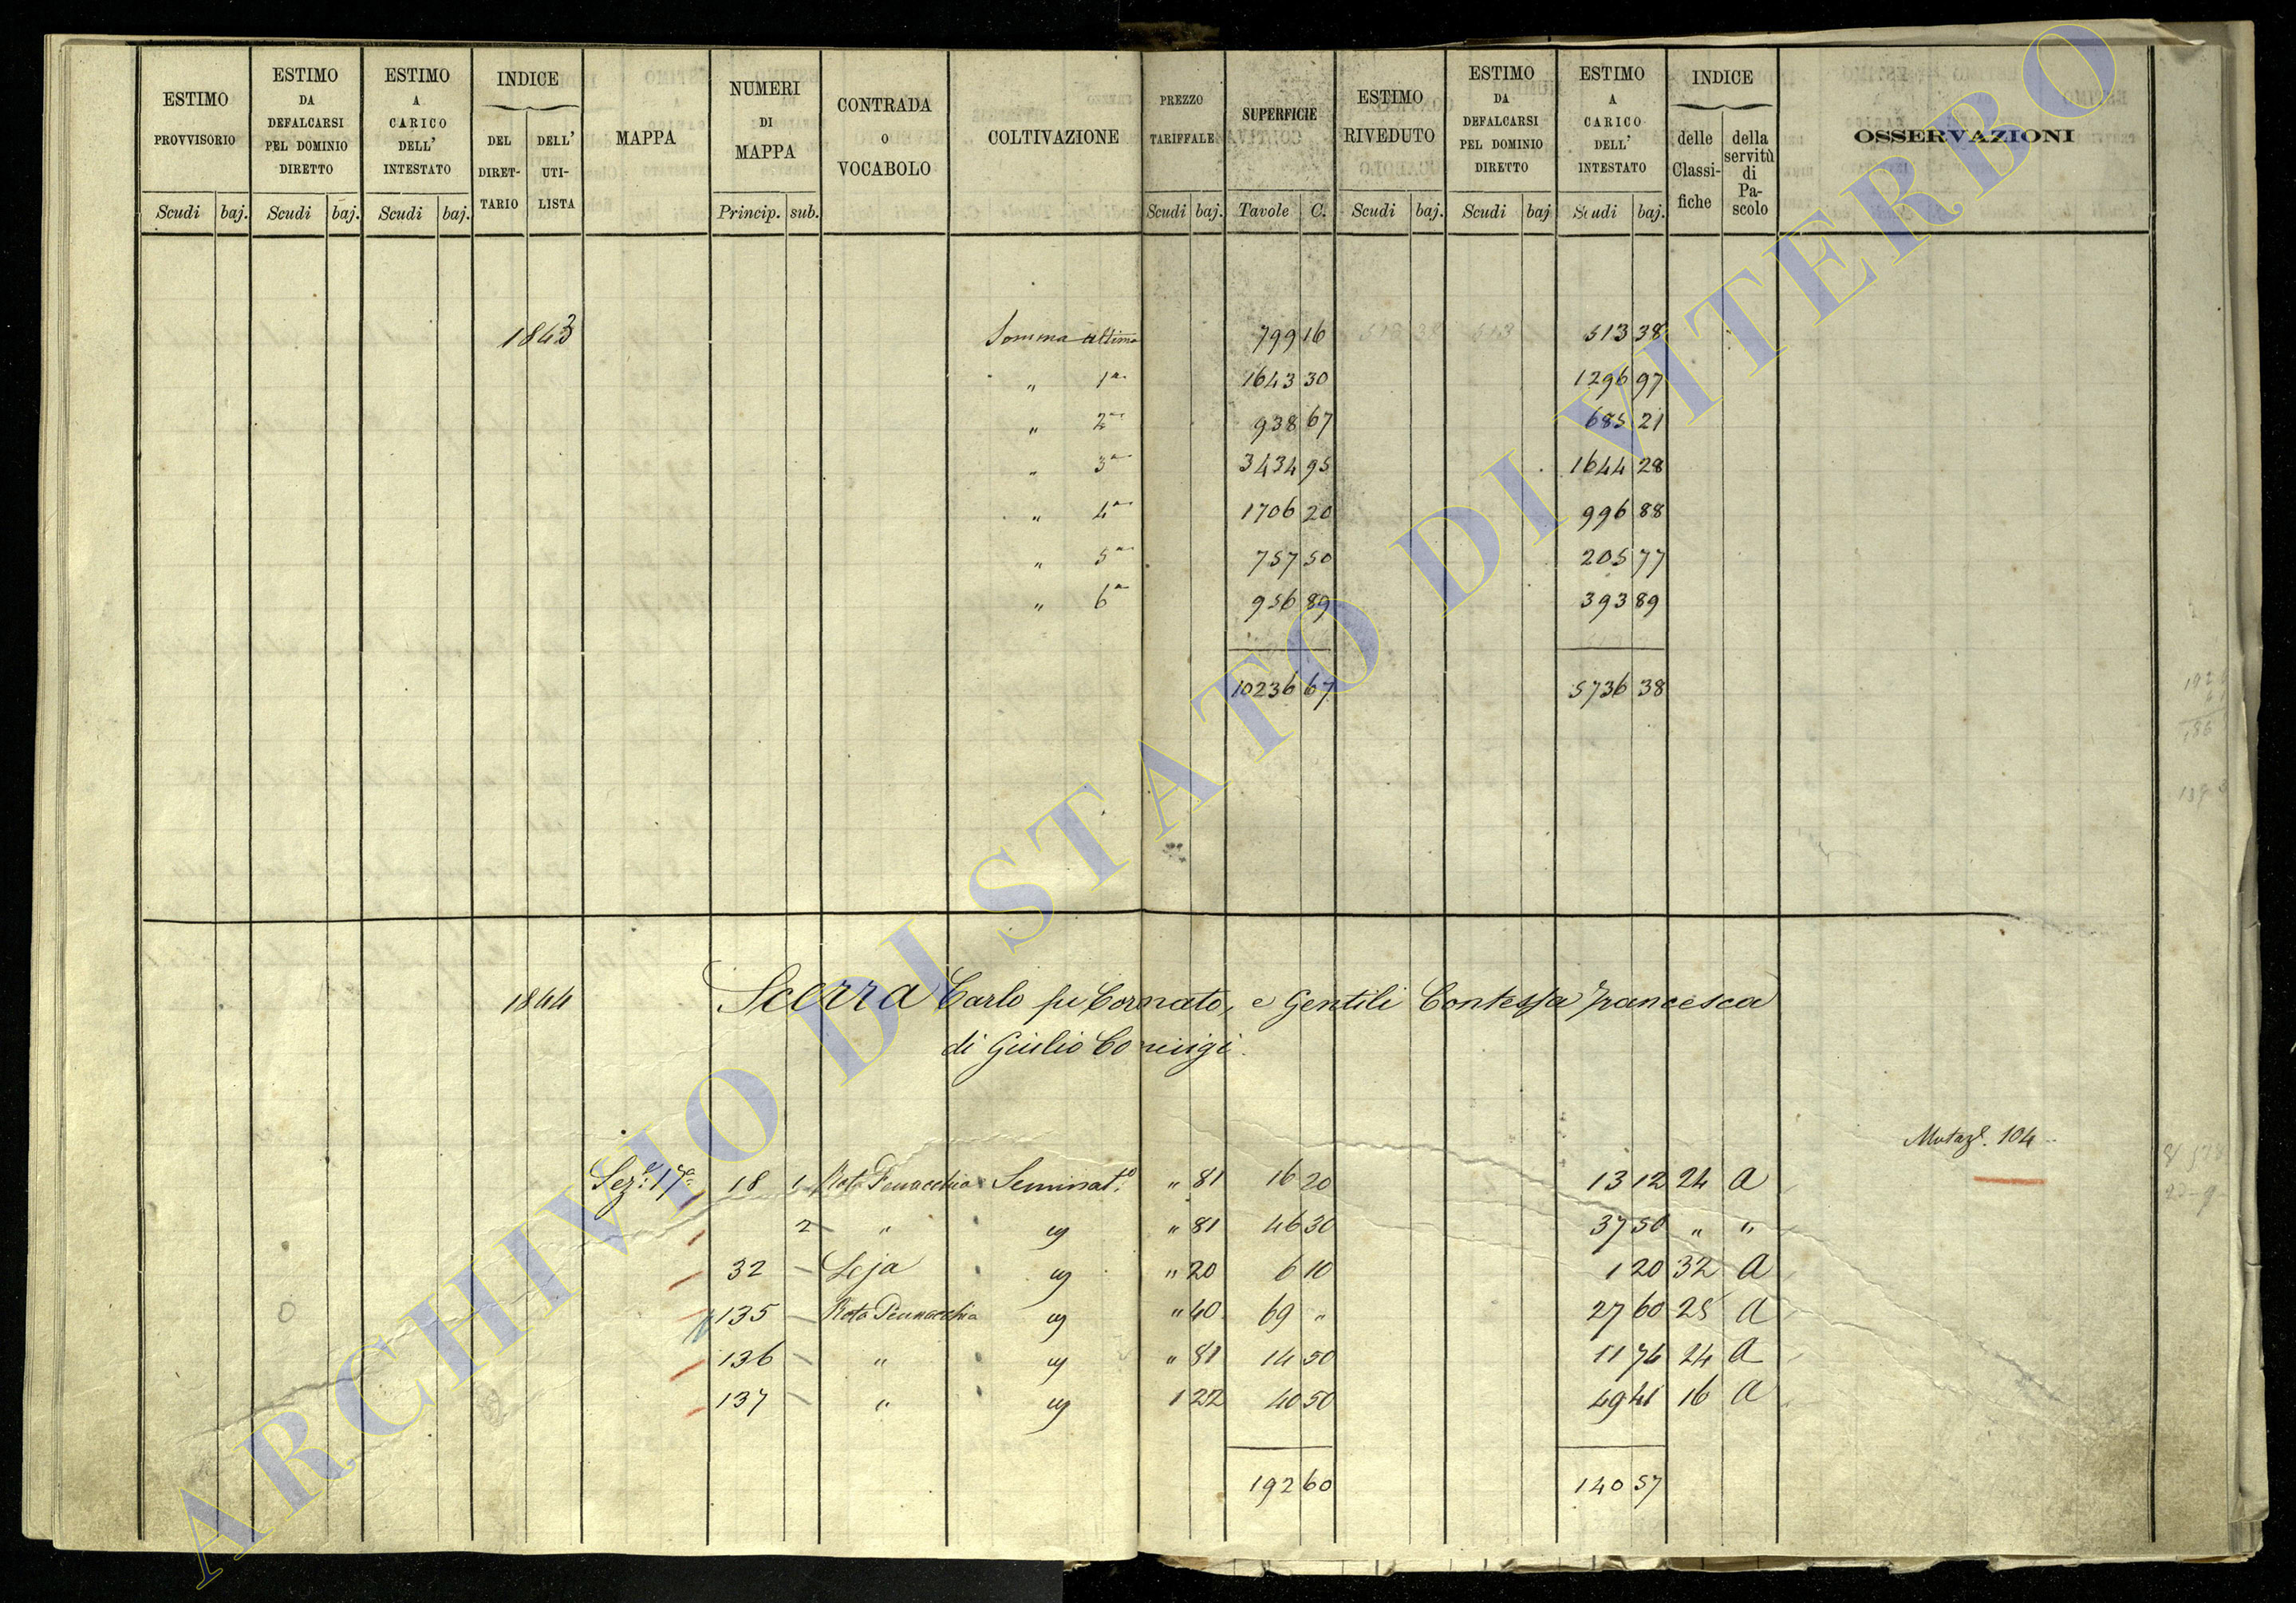 ESTIMO PROVVISORIO
ESTIMO DA DEFALCARSI PEL DOMINIO DIRETTO
ESTIMO A CARICO DELL' INTESTATO
INDICE
DEL DIRET-TARIO
DELL' UTI-LISTA
MAPPA
NUMERI DI MAPPA
CONTRADA O VOCABOLO
COLTIVAZIONE
PREZZO TARIFFALE
SUPERFICIE
ESTIMO RIVEDUTO
ESTIMO DA DEFALCARSI PEL DOMINIO DIRETTO
ESTIMO A CARICO DELL' INTESTATO
INDICE
delle Classi-fiche
della servitù di Pa-scolo
OSSERVAZIONI
Scudi baj. Scudi baj. Scudi baj. Princip. sub. Scudi baj. Tavole C. Scudi baj. Scudi baj Scudi baj.
1843 Somma ultima 799 16 513 38
" 1a 1643 30 1296 97
" 2a 938 67 685 21
" 3a 3434 95 1644 28
" 4a 1706 20 996 88
" 5a 757 50 205 77
" 6a 956 89 393 89
10236 67 5736 38
1844 Scerra Carlo fu Cornato, e Gentili Contessa Francesca
di Giulio Coniugi
Mutazl. 104
Sez.e 17a 18 1 Rota Pennacchia Seminat.o " 81 16 20 13 12 24 A
2 " " 81 46 30 37 50 " "
32 Leja " 20 6 10 1 20 32 A
135 Rota Pennacchia " 40 69 " 27 60 25 A
136 " " 81 14 50 11 74 24 A
137 " 1 22 40 50 49 41 16 A
192 60 140 57
ARCHIVIO DI STATO DI VITERBO